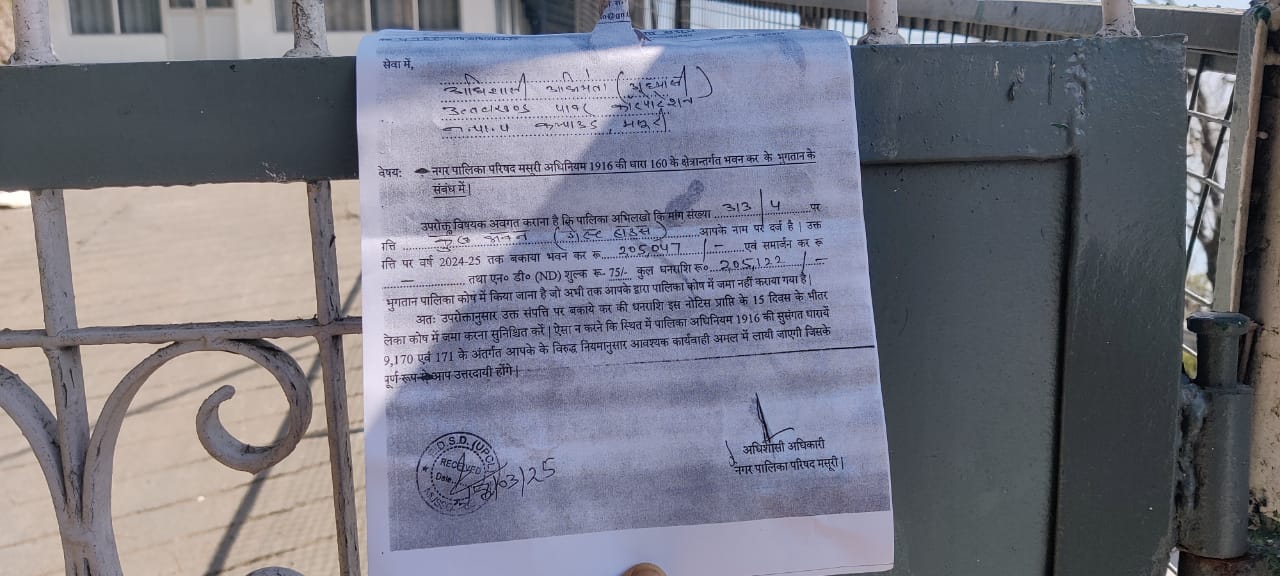 सेवा में,
अधिशासी अभियंता
उत्तराखण्ड पावर कॉरपोरेशन
न.पा.प कम्पाउंड, मसूरी
वेषय: नगर पालिका परिषद मसूरी अधिनियम 1916 की धारा 160 के क्षेत्रान्तर्गत भवन कर के भुगतान के
संबंध में|
उपरोक्त विषयक अवगत कराना है कि पालिका अभिलखो कि मांग संख्या 313/4 पर
त्ति (गेस्ट हाउस) आपके नाम पर दर्ज है | उक्त
त्ति पर वर्ष 2024-25 तक बकाया भवन कर रू 205,047/- एवं समार्जन कर रू
- तथा एन० डी० (ND) शुल्क रू- 75/- कुल धनराशि रू० 205,122/-
भुगतान पालिका कोष में किया जाना है जो अभी तक आपके द्वारा पालिका कोष में जमा नहीं कराया गया है|
अतः उपरोक्तानुसार उक्त संपत्ति पर बकाये कर की धनराशि इस नोटिस प्राप्ति के 15 दिवस के भीतर
लेका कोष में जमा करना सुनिश्चित करें | ऐसा न करने कि स्थित में पालिका अधिनियम 1916 की सुसंगत धारायें
9,170 एवं 171 के अंतर्गत आपके के विरुद्ध नियमानुसार आवश्यक कार्यवाही अमल में लायी जाएगी जिसके
पूर्ण रूप से आप उत्तरदायी होंगे|
अधिशासी अधिकारी
नगर पालिका परिषद मसूरी|
D.S.D.(UPCL)
RECEIVED
Date
/03/25